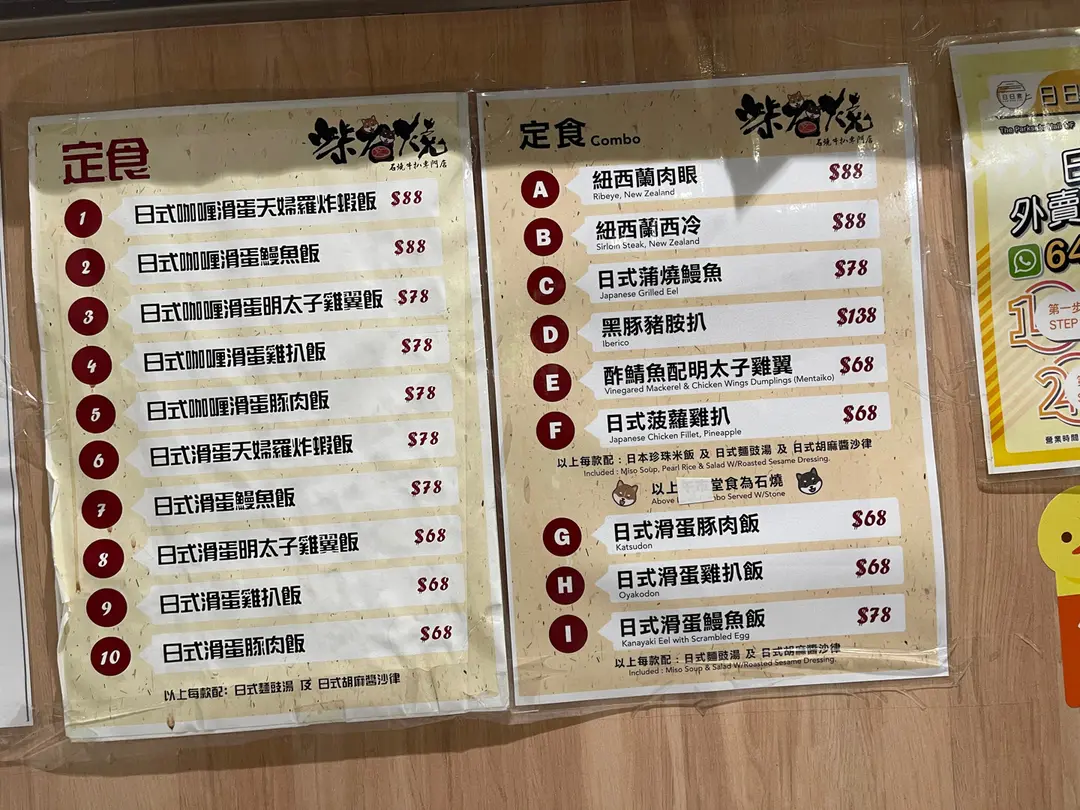 定食
柴石燒
石燒牛扒專門店
1 日式咖喱滑蛋天婦羅炸蝦飯 $88
2 日式咖喱滑蛋鰻魚飯 $88
3 日式咖喱滑蛋明太子雞翼飯 $78
4 日式咖喱滑蛋雞扒飯 $78
5 日式咖喱滑蛋豚肉飯 $78
6 日式滑蛋天婦羅炸蝦飯 $78
7 日式滑蛋鰻魚飯 $78
8 日式滑蛋明太子雞翼飯 $68
9 日式滑蛋雞扒飯 $68
10 日式滑蛋豚肉飯 $68
以上每款配：日式麵豉湯 及 日式胡麻醬沙律
定食 Combo
柴石燒
石燒牛扒專門店
A 紐西蘭肉眼 $88
Ribeye, New Zealand
B 紐西蘭西冷 $88
Sirloin Steak, New Zealand
C 日式蒲燒鰻魚 $78
Japanese Grilled Eel
D 黑豚豬胺扒 $138
Iberico
E 酢鯖魚配明太子雞翼 $68
Vinegared Mackerel & Chicken Wings Dumplings (Mentaiko)
F 日式菠蘿雞扒 $68
Japanese Chicken Fillet, Pineapple
以上每款配：日本珍珠米飯 及 日式麵豉湯 及 日式胡麻醬沙律
Included : Miso Soup, Pearl Rice & Salad W/Roasted Sesame Dressing.
以上 堂食為石燒
Above Served W/Stone
G 日式滑蛋豚肉飯 $68
Katsudon
H 日式滑蛋雞扒飯 $68
Oyakodon
I 日式滑蛋鰻魚飯 $78
Kanayaki Eel with Scrambled Egg
以上每款配：日式麵豉湯 及 日式胡麻醬沙律
Included : Miso Soup & Salad W/Roasted Sesame Dressing.
日日
外賣
64
1 第一步
STEP
2
營業時間